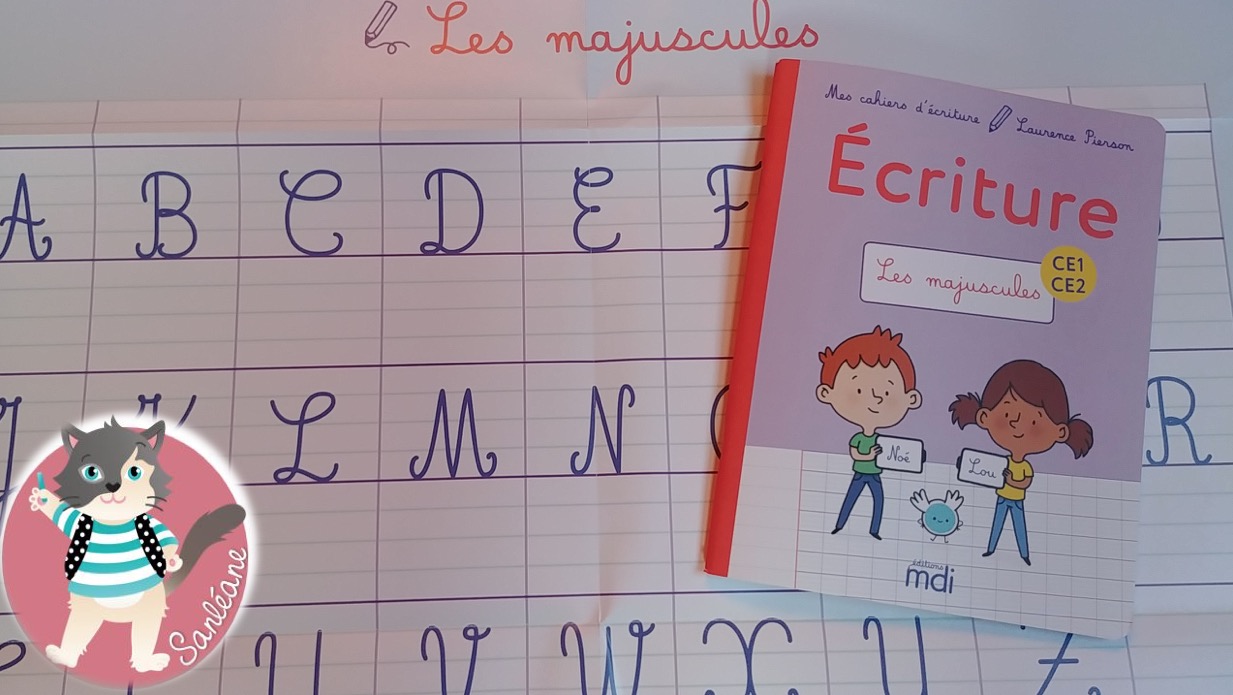 Les majuscules
A B C D E F
J K L M N R
U V W X Y Z
Mes cahiers d'écriture Laurence Pierson
Écriture
CE1
CE2
Les majuscules
Noé
Lou
éditions
mdi
Sanléane